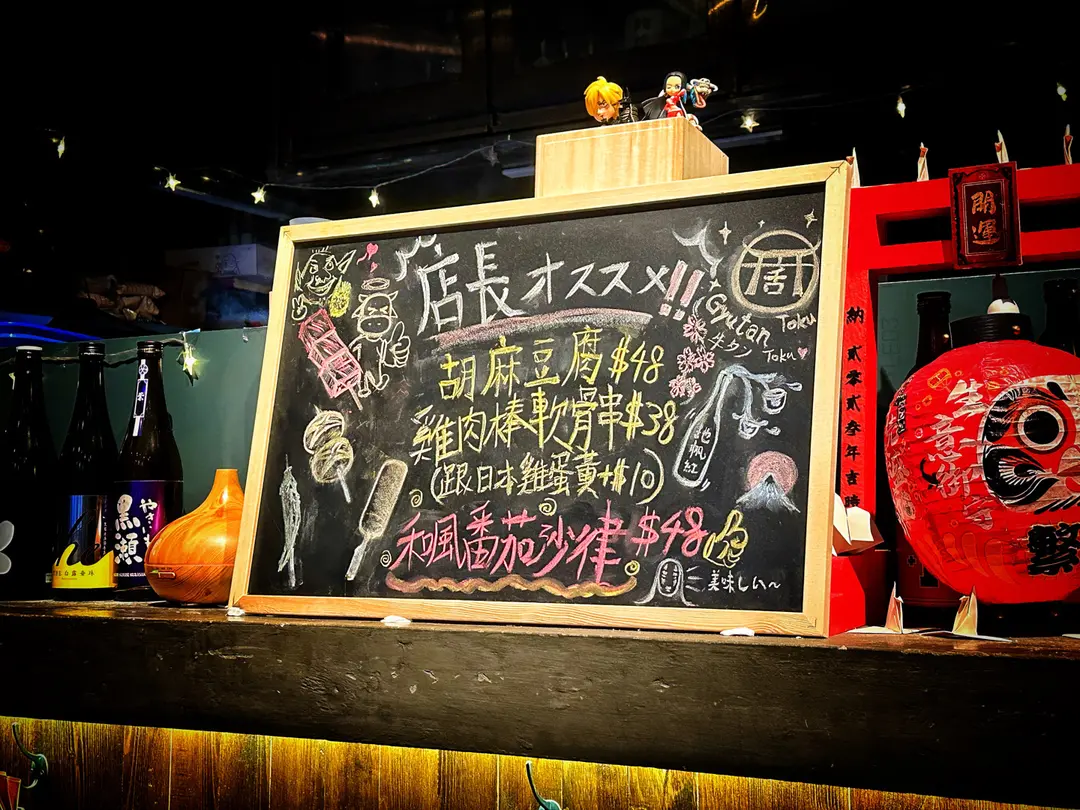 店長オススメ!!
居
Gyutan Toku
牛タン Toku
胡麻豆腐$48
雞肉棒軟骨串$38
(跟日本雞蛋黃+$10)
和風番茄沙律$48
美味しい~
開運
納貳零貳叁年吉晴
黒瀬
繁